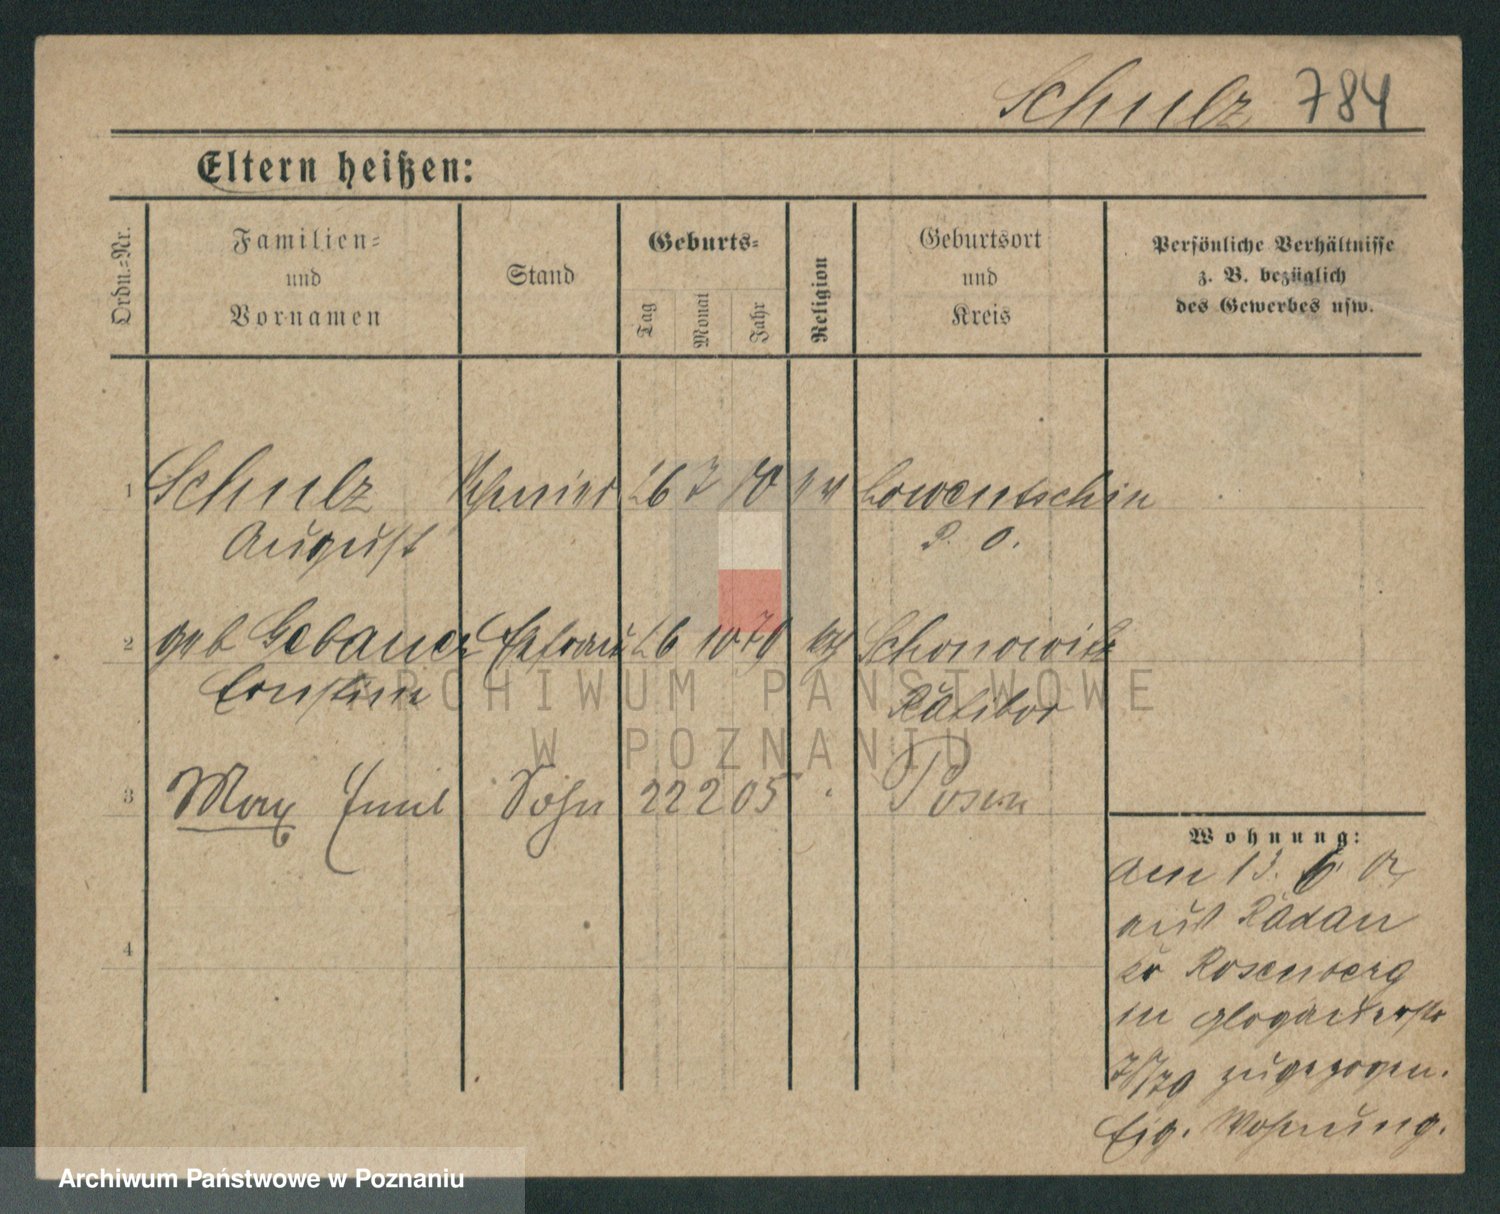 Schulz 784
Eltern heißen:
Ordn.=Nr.
Familien=
und
Vornamen
Stand
Geburts=
Tag
Monat
Jahr
Religion
Geburtsort
und
Kreis
Persönliche Verhältnisse
z. B. bezüglich
des Gewerbes usw.
1 Schulz 26 7 Lowentschin
August P. O.
2 geb Gebauer Ehefrau 26 10 79 kth Schonowitz
Ernstine Ratibor
3 Max Emil Sohn 22 2 05 Posen
4
Wohnung:
am 13. 6.
aus Radau
Kr Rosenberg
in Glogauerstr
zugezogen.
Eig. Wohnung.
ARCHIWUM PAŃSTWOWE
W POZNANIU
Archiwum Państwowe w Poznaniu